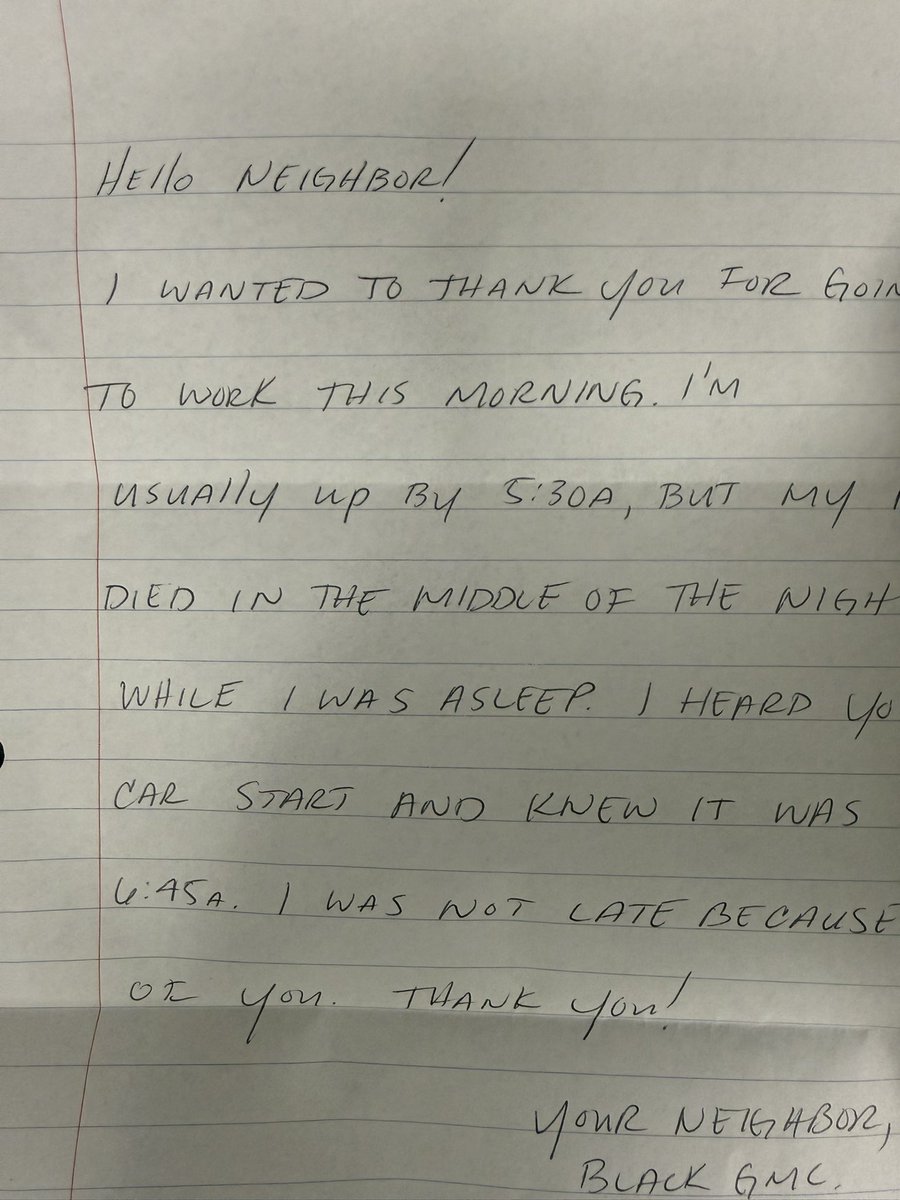 Hello NEIGHBOR!
I WANTED TO THANK you FOR GOIN
TO WORK THIS MORNING. I'M
usuAlly up By 5:30A, BUT My
DIED IN THE MIDDLE OF THE NIGH
WHILE I WAS ASLEEP. I HEARD yo
CAR START AND KNEW IT WAS
6:45A. I WAS NOT LATE BECAUSE
OF you. THANK you!
your NEIGHBOR,
BLACK GMC.